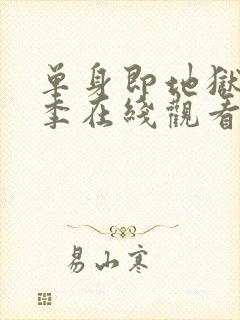 單身即地獄
季在綫觀看
易山寒